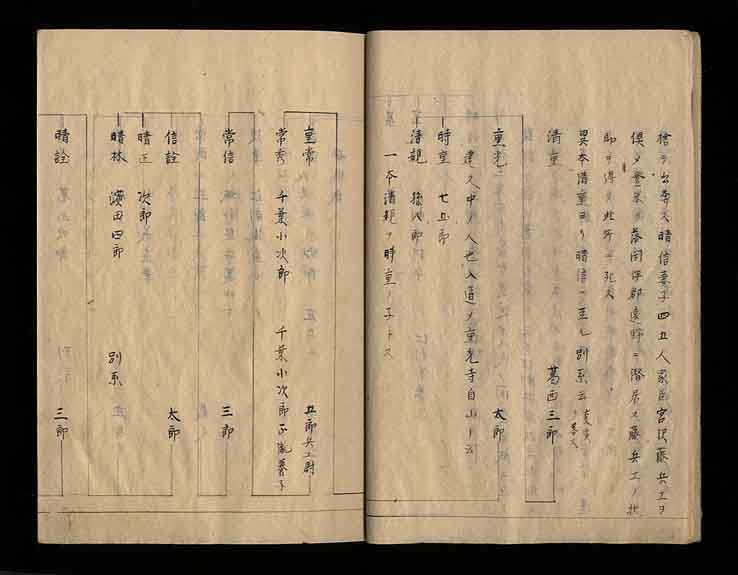 捨ヲ出奔ス晴信妻子四五人家臣宮沢藤兵エヲ
倶メ登米ヲ落閉伊郡遠野ニ潜居ス藤兵エノ状
異本清重ヨリ晴信ニ至ル別系云
清重 葛西三郎
重光 太郎
建久中ノ人也入道メ重光寺自山ト云
時重 七五郎
清親
一本清親ヲ時重ノ子トス
重常 五郎兵エ尉
常秀 千葉小次郎 千葉小次郎正胤養子
常信 三郎
信詮 太郎
晴正 次郎
晴林 濱田四郎 別系
晴詮 三郎